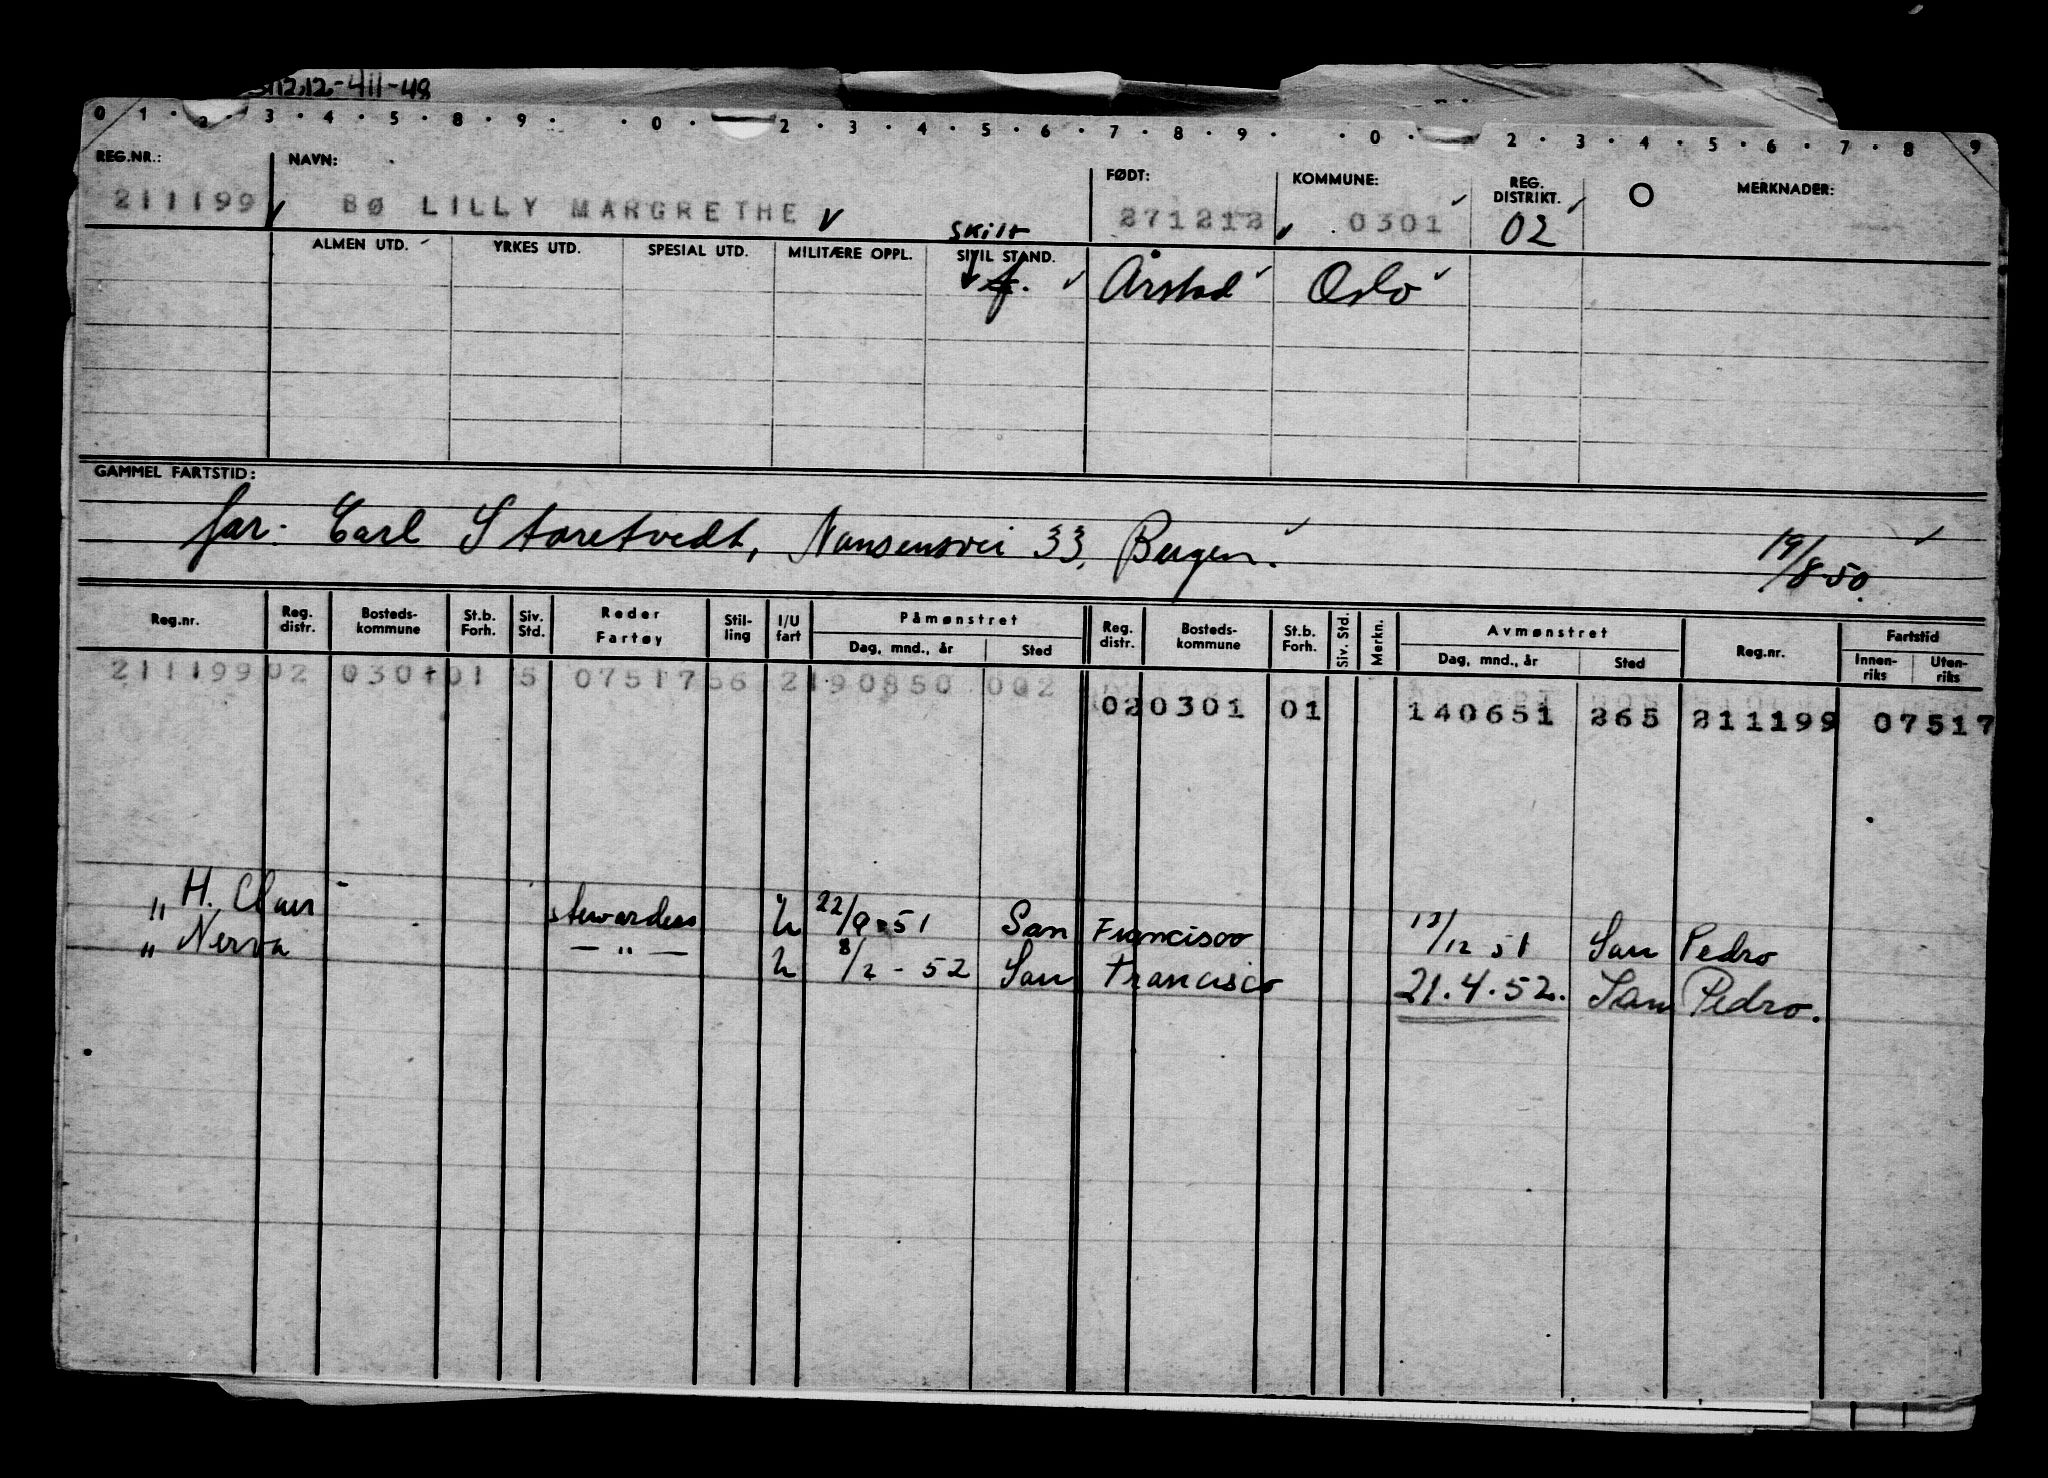 12.12-411-48
0 1 · 2 · 3 · 4 · 5 · 8 · 9 · · 0 · 2 · 3 · 4 · 5 · 6 · 7 · 8 · 9 · · 0 · 2 · 3 · 4 · 5 · 6 · 7 · 8 9
REG.NR.: NAVN: FØDT: KOMMUNE: REG. DISTRIKT. O MERKNADER:
211199 BØ LILLY MARGRETHE 271212 0301 02
skilt
ALMEN UTD. YRKES UTD. SPESIAL UTD. MILITÆRE OPPL. SIVIL STAND.
f. Årstad Oslo
GAMMEL FARTSTID:
far: Carl Storetvedt, Nansensvei 33, Bergen.
19/8-50.
Reg.nr. Reg. distr. Bosteds-kommune St.b. Forh. Siv. Std. Reder Fartøy Stil-ling I/U fart Påmønstret Reg. distr. Bosteds-kommune St.b. Forh. Siv. Std. Merkn. Avmønstret Reg.nr. Fartstid
Dag, mnd., år Sted Dag, mnd., år Sted Innen-riks Uten-riks
211199 02 0301 01 5 07517 56 2 190850 002
02 0301 01 140651 265 211199 07517
" H. Clau stewardess u 22/9-51 San Francisco 13/12 51 San Pedro
" Nerva — " — u 8/2-52 San Francisco 21.4.52. San Pedro.